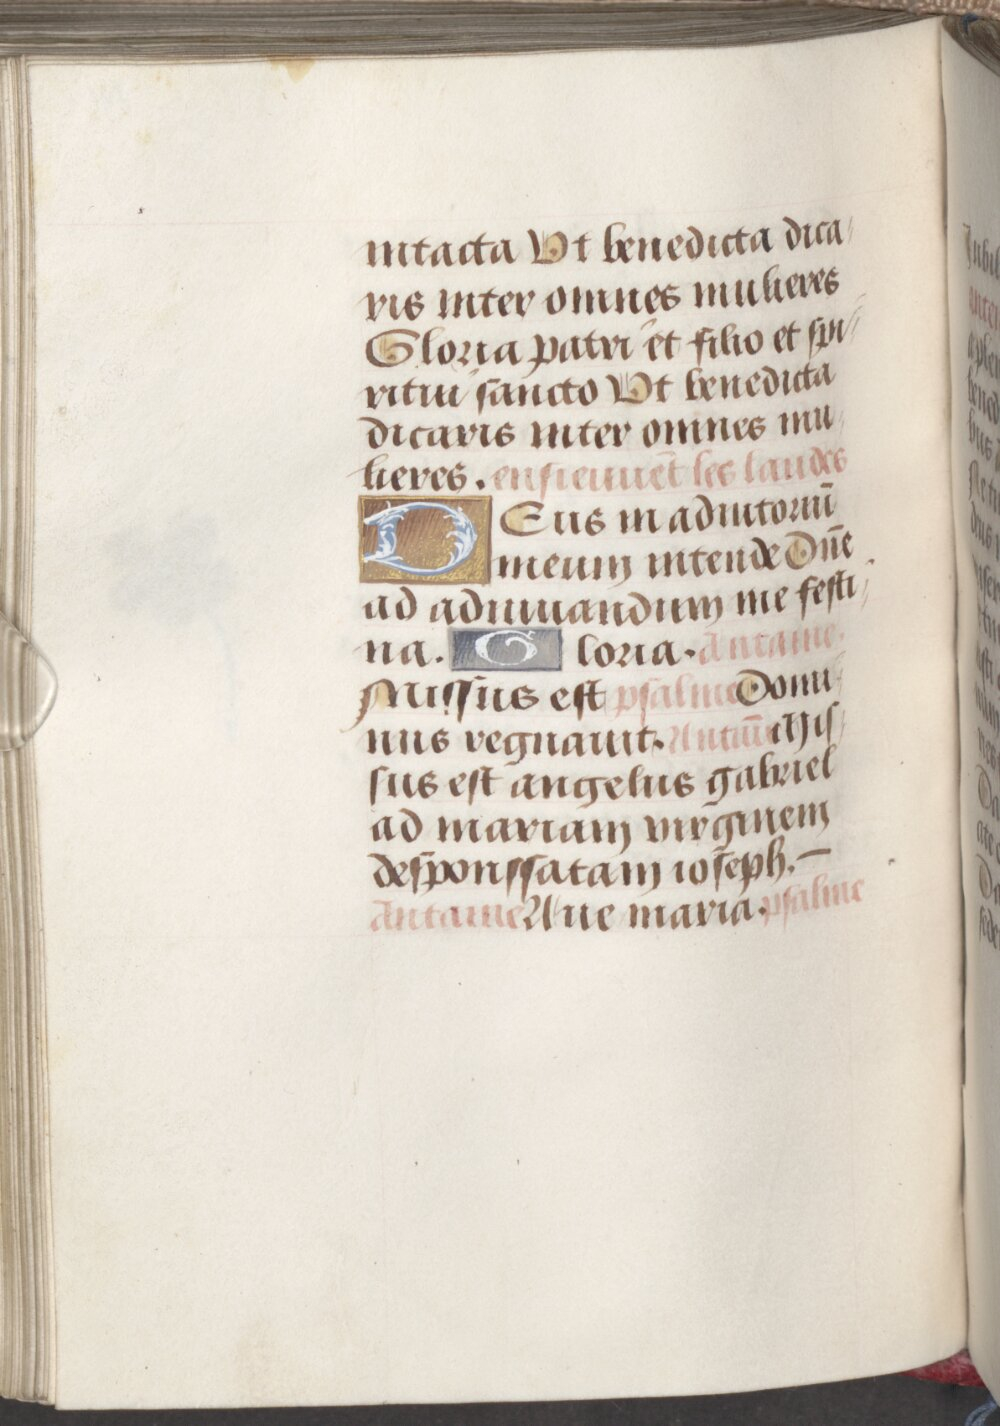 intacta Ut benedicta dica/
ris inter omnes mulieres
Gloria patri et filio et spi/
ritui sancto Ut benedicta
dicaris inter omnes mu/
lieres . ensieuuēt les laudes
DEus in adiutoriū
meum intende Dn̄e
ad adiuuandum me festi/
na. Gloria. Antaine.
Missus est psalme Domi/
nus regnauit. Antain̄e Mis/
sus est angelus gabriel
ad mariam virginem
desponssatam ioseph. —
Antaine Aue maria. psalme